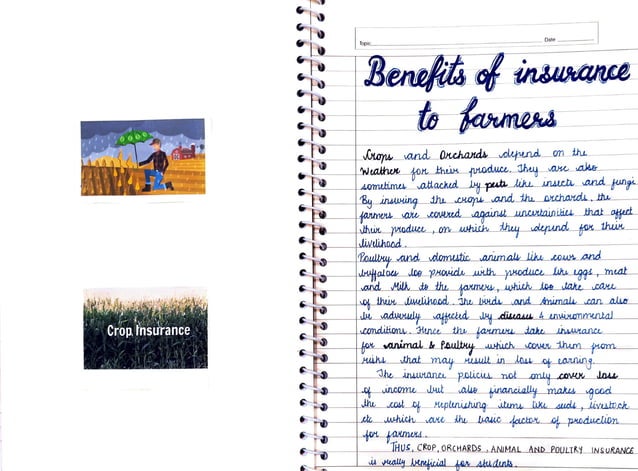 Crop Insurance
Topic
Date
Benefits of insurance
to farmers
Crops and Orchards depend on the
Weather for their produce. They are also
sometimes attacked by pests like insects and fungi.
By insuring the crops and the orchards, the
farmers are covered against uncertainities that affect
their produce, on which they depend for their
livelihood.
Poultry and domestic animals like cows and
buffaloes too provide with produce like eggs, meat
and Milk to the farmers, which too take care
of their livelihood. The birds and Animals can also
be adversely affected by diseases & environmental
conditions. Hence the farmers take insurance
for animal & Poultry which cover them from
risks that may result in loss of earning.
The insurance policies not only cover loss
of income but also financially makes good
the cost of replenishing items like seeds, livestock
etc which are the basic factor of production
for farmers.
THUS, CROP, ORCHARDS, ANIMAL AND POULTRY INSURANCE
is really beneficial for students.